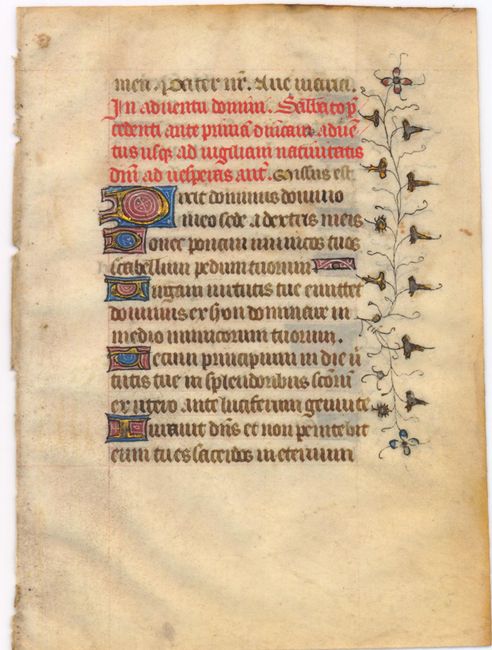 men. Pater nr̄. Aue maria.
In aduentu domini. Sabbato p̄
cedenti ante primā dn̄icam aduē
tus usq; ad uigiliam natiuitatis
dn̄i ad uesperas ant̄. Missus est.
Dixit dominus domino
meo sede a dextris meis
Donec ponam inimicos tuos
scabellum pedum tuorum
Uirgam uirtutis tue emittet
dominus ex syon dominare in
medio inimicorum tuorum.
Tecum principium in die uir
tutis tue in splendoribus sctōrū
ex utero ante luciferum genui te
Iurauit dn̄s et non penitebit
eum tu es sacerdos in eternum